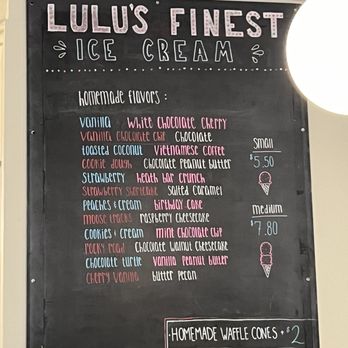 LULU'S FINEST
ICE CREAM
homemade flavors:
vanilla White Chocolate Cherry
vanilla chocolate chip Chocolate
toasted coconut Vietnamese coffee
cookie dough Chocolate Peanut butter
Strawberry heath bar crunch
Strawberry shortcake Salted Caramel
Peaches & cream birthday cake
moose tracks raspberry cheesecake
COOKIES & CREAM mint chocolate chip
rocky road Chocolate walnut cheesecake
Chocolate turtle Vanilla Peanut butter
Cherry Vanilla butter pecan
small
$5.50
medium
$7.80
·HOMEMADE WAFFLE CONES + $2